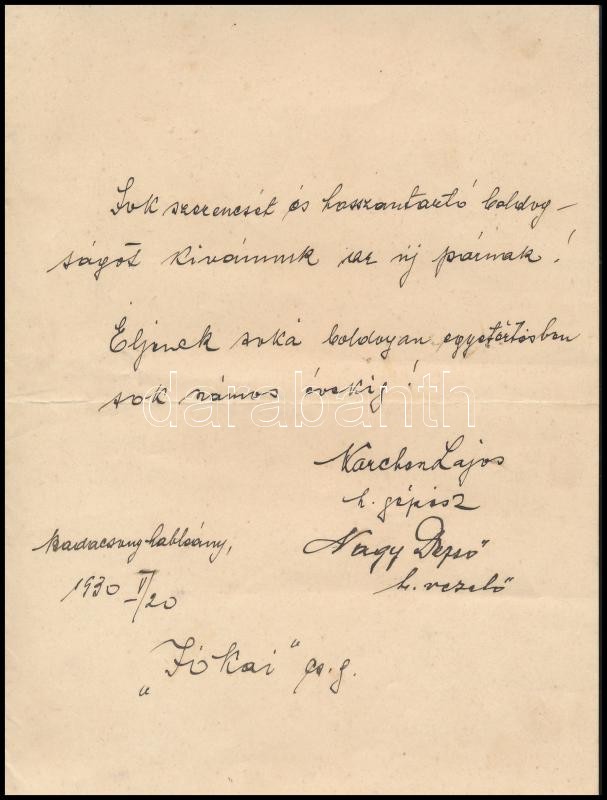 Sok szerencsét és hosszantartó boldog-
ságot kivánunk az új párnak!
Éljenek soká boldogan egyetértésben
sok számos évekig!
darabanth
Karchen Lajos
h. gépész
Nagy Dezső
h. vezető
Badacsony hableány,
1930 V/20
„Jókai" cs. g.